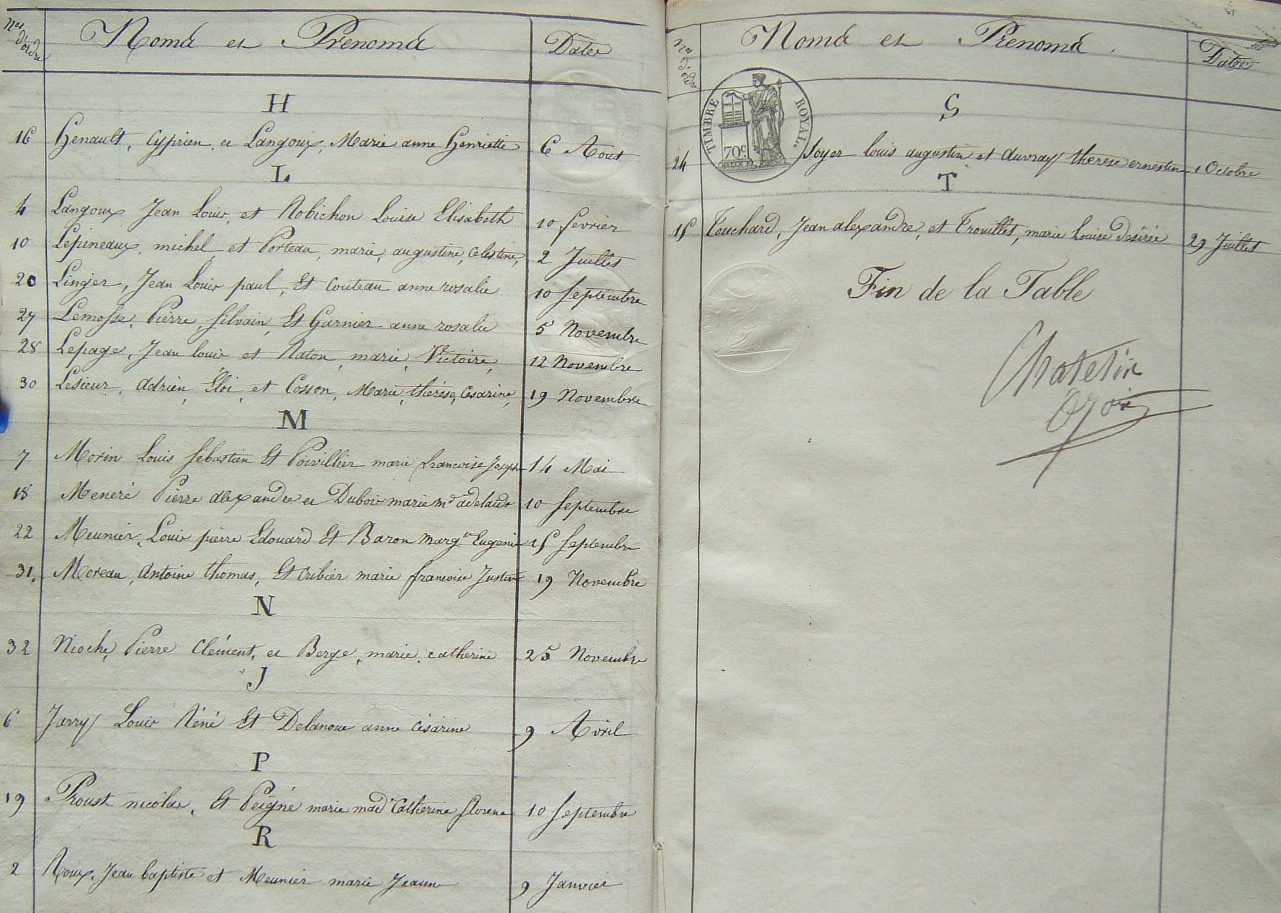 Nos d'ordre Noms et Prénoms Dates
H
16 Henault, Cyprien et Langoux, Marie anne Henriette 6 Aout
L
4 Langoux Jean Louis, et Robichon Louise Elisabeth 10 fevrier
10 Lepineaux, michel et Porteau, marie, augustine, Celestine, 2 Juillet
20 Linger, Jean Louis paul, Et Couteau anne rosalie 10 Septembre
27 Lemosse, Pierre Silvain, Et Garnier anne rosalie 5 Novembre
28 Lepage, Jean louis et Naton, marie, Victoire, 12 Novembre
30 Lesieur, Adrien, Eloi, et Cosson, Marie, thérèse, Césarine, 19 Novembre
M
7 Morin Louis Sébastien Et Poivillier marie francoise Joseph 14 Mai
18 Meneré Pierre alexandre et Dubois marie md adelaide 10 Septembre
22 Meunier, Louis pierre Edouard Et Baron Margte Eugenie 15 Septembre
31, Moreau, Antoine thomas, Et Cribier marie francoise Justine 19 Novembre
N
32 Nioche, Pierre Clément, et Berge, marie, catherine 25 Novembre
J
6 Jarry Louis Réné Et Delanoue anne Césarine 9 Avril
P
19 Proust nicolas, Et Peigné marie mad Catherine florence 10 Septembre
R
2 Roux, Jean baptiste et Meunier marie Jeanne 9 Janvier
Nos d'ordre Noms et Prenoms. Dates
TIMBRE ROYAL.
70c
S
24 Soyer louis augustin et auvray therese ernestine 1 Octobre
T
15 Touchard, Jean alexandre, et Trouillet, marie Louise desirée 29 Juillet
Fin de la Table
Chatelin